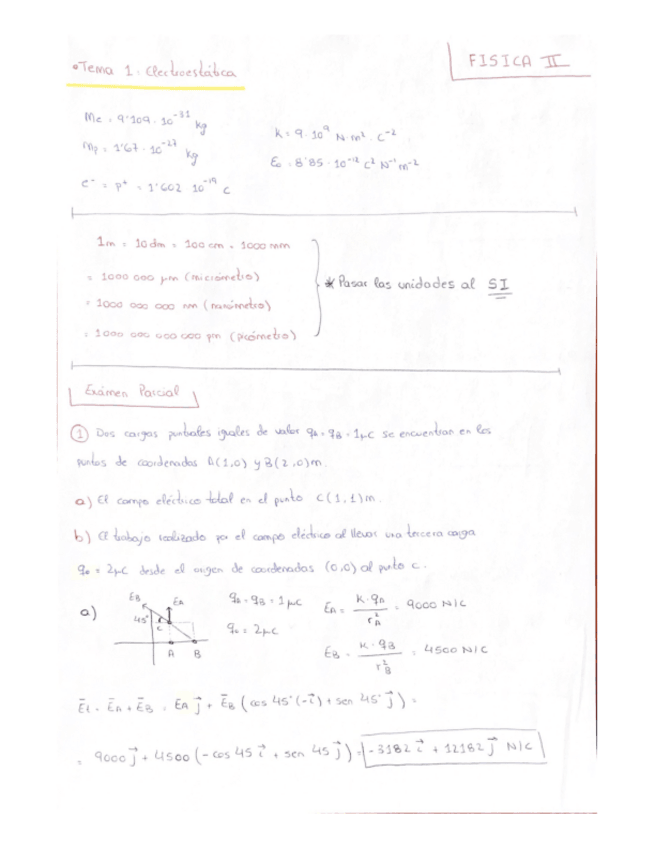 FISICA II
• Tema 1: Electroestática
Me = 9'109 · 10^-31 kg
mp = 1'67 · 10^-27 kg
e^- = p^+ = 1'602 10^-19 C
K = 9 · 10^9 N · m^2 · C^-2
E₀ = 8'85 · 10^-12 C^2 N^-1 m^-2
1m = 10dm = 100 cm = 1000 mm
= 1000 000 µm (micrómetro)
= 1000 000 000 nm (nanómetro)
= 1000 000 000 000 pm (picómetro)
* Pasar las unidades al SI
Exámen Parcial
① Dos cargas puntuales iguales de valor qA = qB = 1µC se encuentran en los
puntos de coordenadas A(1,0) y B(2,0)m.
a) El campo eléctrico total en el punto C(1,1)m.
b) El trabajo realizado por el campo eléctrico al llevar una tercera carga
q₀ = 2µC desde el origen de coordenadas (0,0) al punto c.
a)
EB EA
45° c
A B
qA = qB = 1µC
q₀ = 2µC
EA = K · qA / rA^2 = 9000 N/C
EB = K · qB / rB^2 = 4500 N/C
Ēt = ĒA + ĒB = EA j⃗ + ĒB (cos 45° (-i⃗) + sen 45° j⃗) =
= 9000 j⃗ + 4500 (-cos 45 i⃗ + sen 45 j⃗) = -3182 i⃗ + 12182 j⃗ N/C